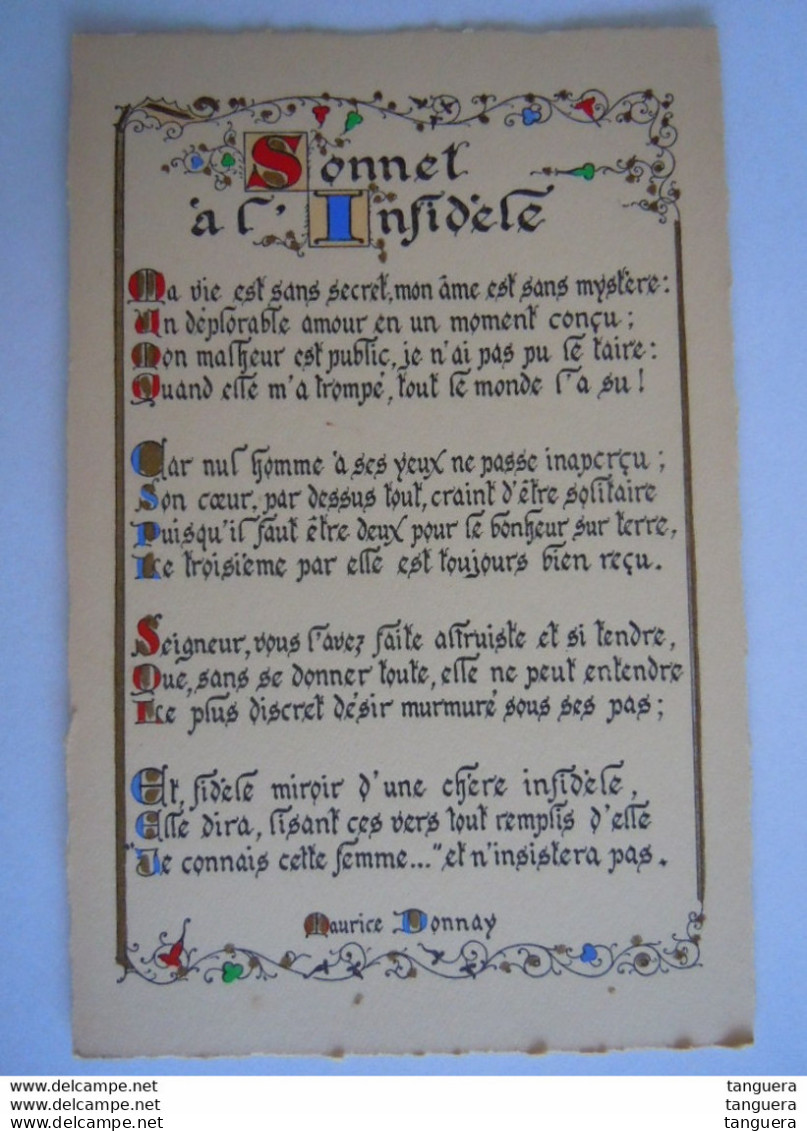 Sonnet
à l'Infidèle
Ma vie est sans secret, mon âme est sans mystère :
Un déplorable amour en un moment conçu ;
Mon malheur est public, je n'ai pas pu le taire :
Quand elle m'a trompé, tout le monde l'a su !
Car nul homme à ses yeux ne passe inaperçu ;
Son cœur, par dessus tout, craint d'être solitaire
Puisqu'il faut être deux pour le bonheur sur terre,
Le troisième par elle est toujours bien reçu.
Seigneur, vous l'avez faite altruiste et si tendre,
Que, sans se donner toute, elle ne peut entendre
Le plus discret désir murmuré sous ses pas ;
Et, fidèle miroir d'une chère infidèle,
Elle dira, lisant ces vers tout remplis d'elle
"Je connais cette femme..." et n'insistera pas.
Maurice Donnay
www.delcampe.net
www.delcampe.net
www.delcampe.net
tanguera
tanguera
tanguera